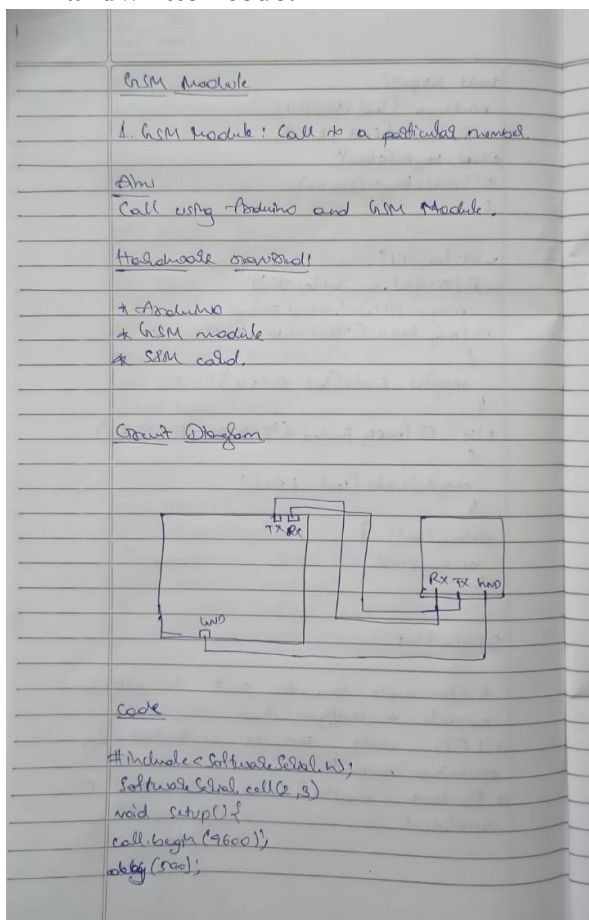 GSM Module
1. GSM Module: Call to a particular number.
Aim
Call using Arduino and GSM Module.
Hardware required:
* Arduino
* GSM module
* SIM card.
Circuit Diagram
TX RX
RX TX GND
GND
code
#include <SoftwareSerial.h>;
SoftwareSerial.call(2,3)
void setup(){
call.begin(9600);
delay(500);